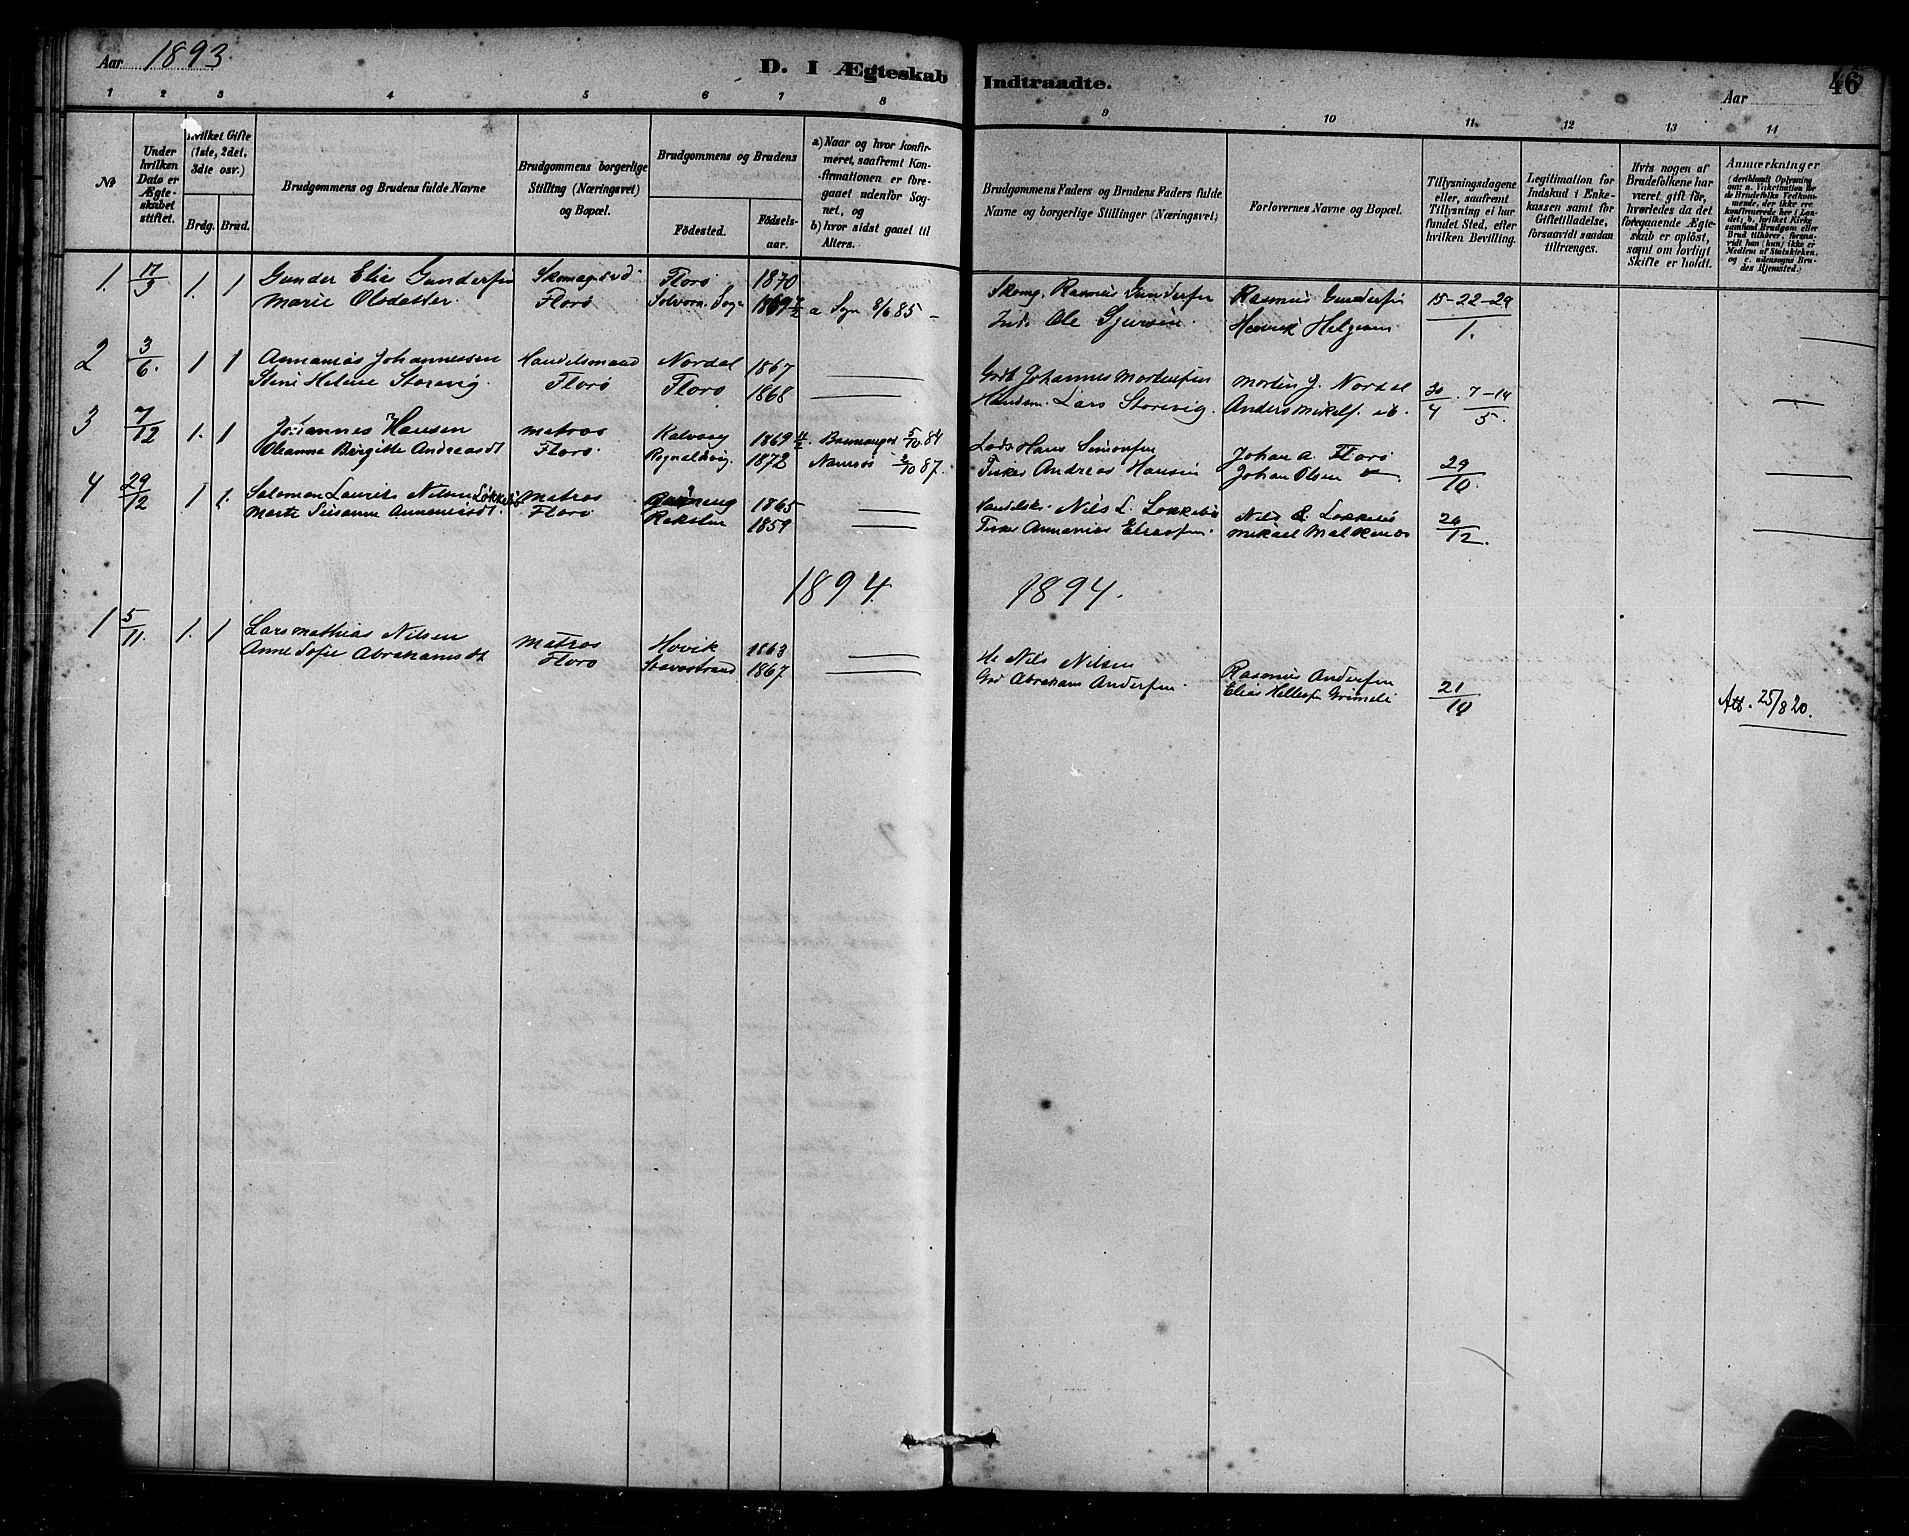 Aar 1893
D. I Ægteskab Indtraadte.
Aar 46
1 2 3 4 5 6 7 8 9 10 11 12 13 14
№
Under hvilken Dato er Ægteskabet stiftet.
hvilket Gifte (1ste, 2det, 3die osv.)
Brdg. Brud.
Brudgommens og Brudens fulde Navne
Brudgommens borgerlige Stilling (Næringsvei) og Bopæl.
Brudgommens og Brudens
Fødested.
Fødselsaar.
a) Naar og hvor konfirmeret, saafremt Konfirmationen er foregaaet udenfor Sognet, og
b) hvor sidst gaaet til Alters.
Brudgommens Faders og Brudens Faders fulde Navne og borgerlige Stillinger (Næringsvei)
Forlovernes Navne og Bopæl.
Tillysningsdagene eller, saafremt Tillysning ei har fundet Sted, efter hvilken Bevilling.
Legitimation for Indskud i Enkekassen samt for Giftetilladelse, forsaavidt saadan tiltrænges.
Hvis nogen af Brudefolkene har været gift før, hvorledes da det foregaaende Ægteskab er opløst, samt om lovligt Skifte er holdt.
Anmærkninger (deriblandt Oplysning om: a. Vakcination for de Brudefolks Vedkommende, der ikke ere konfirmerede her i Landet; b. hvilket Kirkesamfund Brudgom eller Brud tilhører, forsaavidt han (hun) ikke er Medlem af Statskirken, og c. udensogns Brudes Hjemsted.)
1. 17/5 1. 1 Gunder Elias Gundersen Florø 1870 Skomg. Rasmus Gundersen Rasmus Gundersen 15-22-29
Marie Olsdatter. Florø Solvorn. Sogn 1869 a Sogn 85 - Ole Henrik Helgesen 1.
2 3/6. 1 1 Annanias Johannessen Handelsmand Nordal 1867 Johannes Mortensen Morten J. Nordal 30/4 . 7-14/5.
Stine Helene Storevig. Florø Florø 1868 Lars Storevig. Anders Mikels. ib.
3 7/12 1. 1 Johannes Hansen Matros Kalvaag 1869 84 Lods Hans Simonsen Johan A. Florø 29/10.
Oleanna Birgitte Andreasdt Florø Rognaldsvig. 1872 87. Andreas Hansen Johan Olsen
4 29/12 1 1. Salomon Laurits Nilsen Løkkebø Matros 1865 Nils L. Løkkebø Nils Løkkebø 24/12.
Marte Susanne Annaniasdt. Florø Reksten 1859 Annanias Eliassen. Mikael
1894. 1894.
1 5/11. 1. 1 Lars Mathias Nilsen Matros Hovik 1863 Nils Nilsen Rasmus Andersen 21/10
Anne Sofie Abrahamsdt Florø Stavestrand 1867 Abraham Andersen. Elias Grimeli Att. 25/8 20.